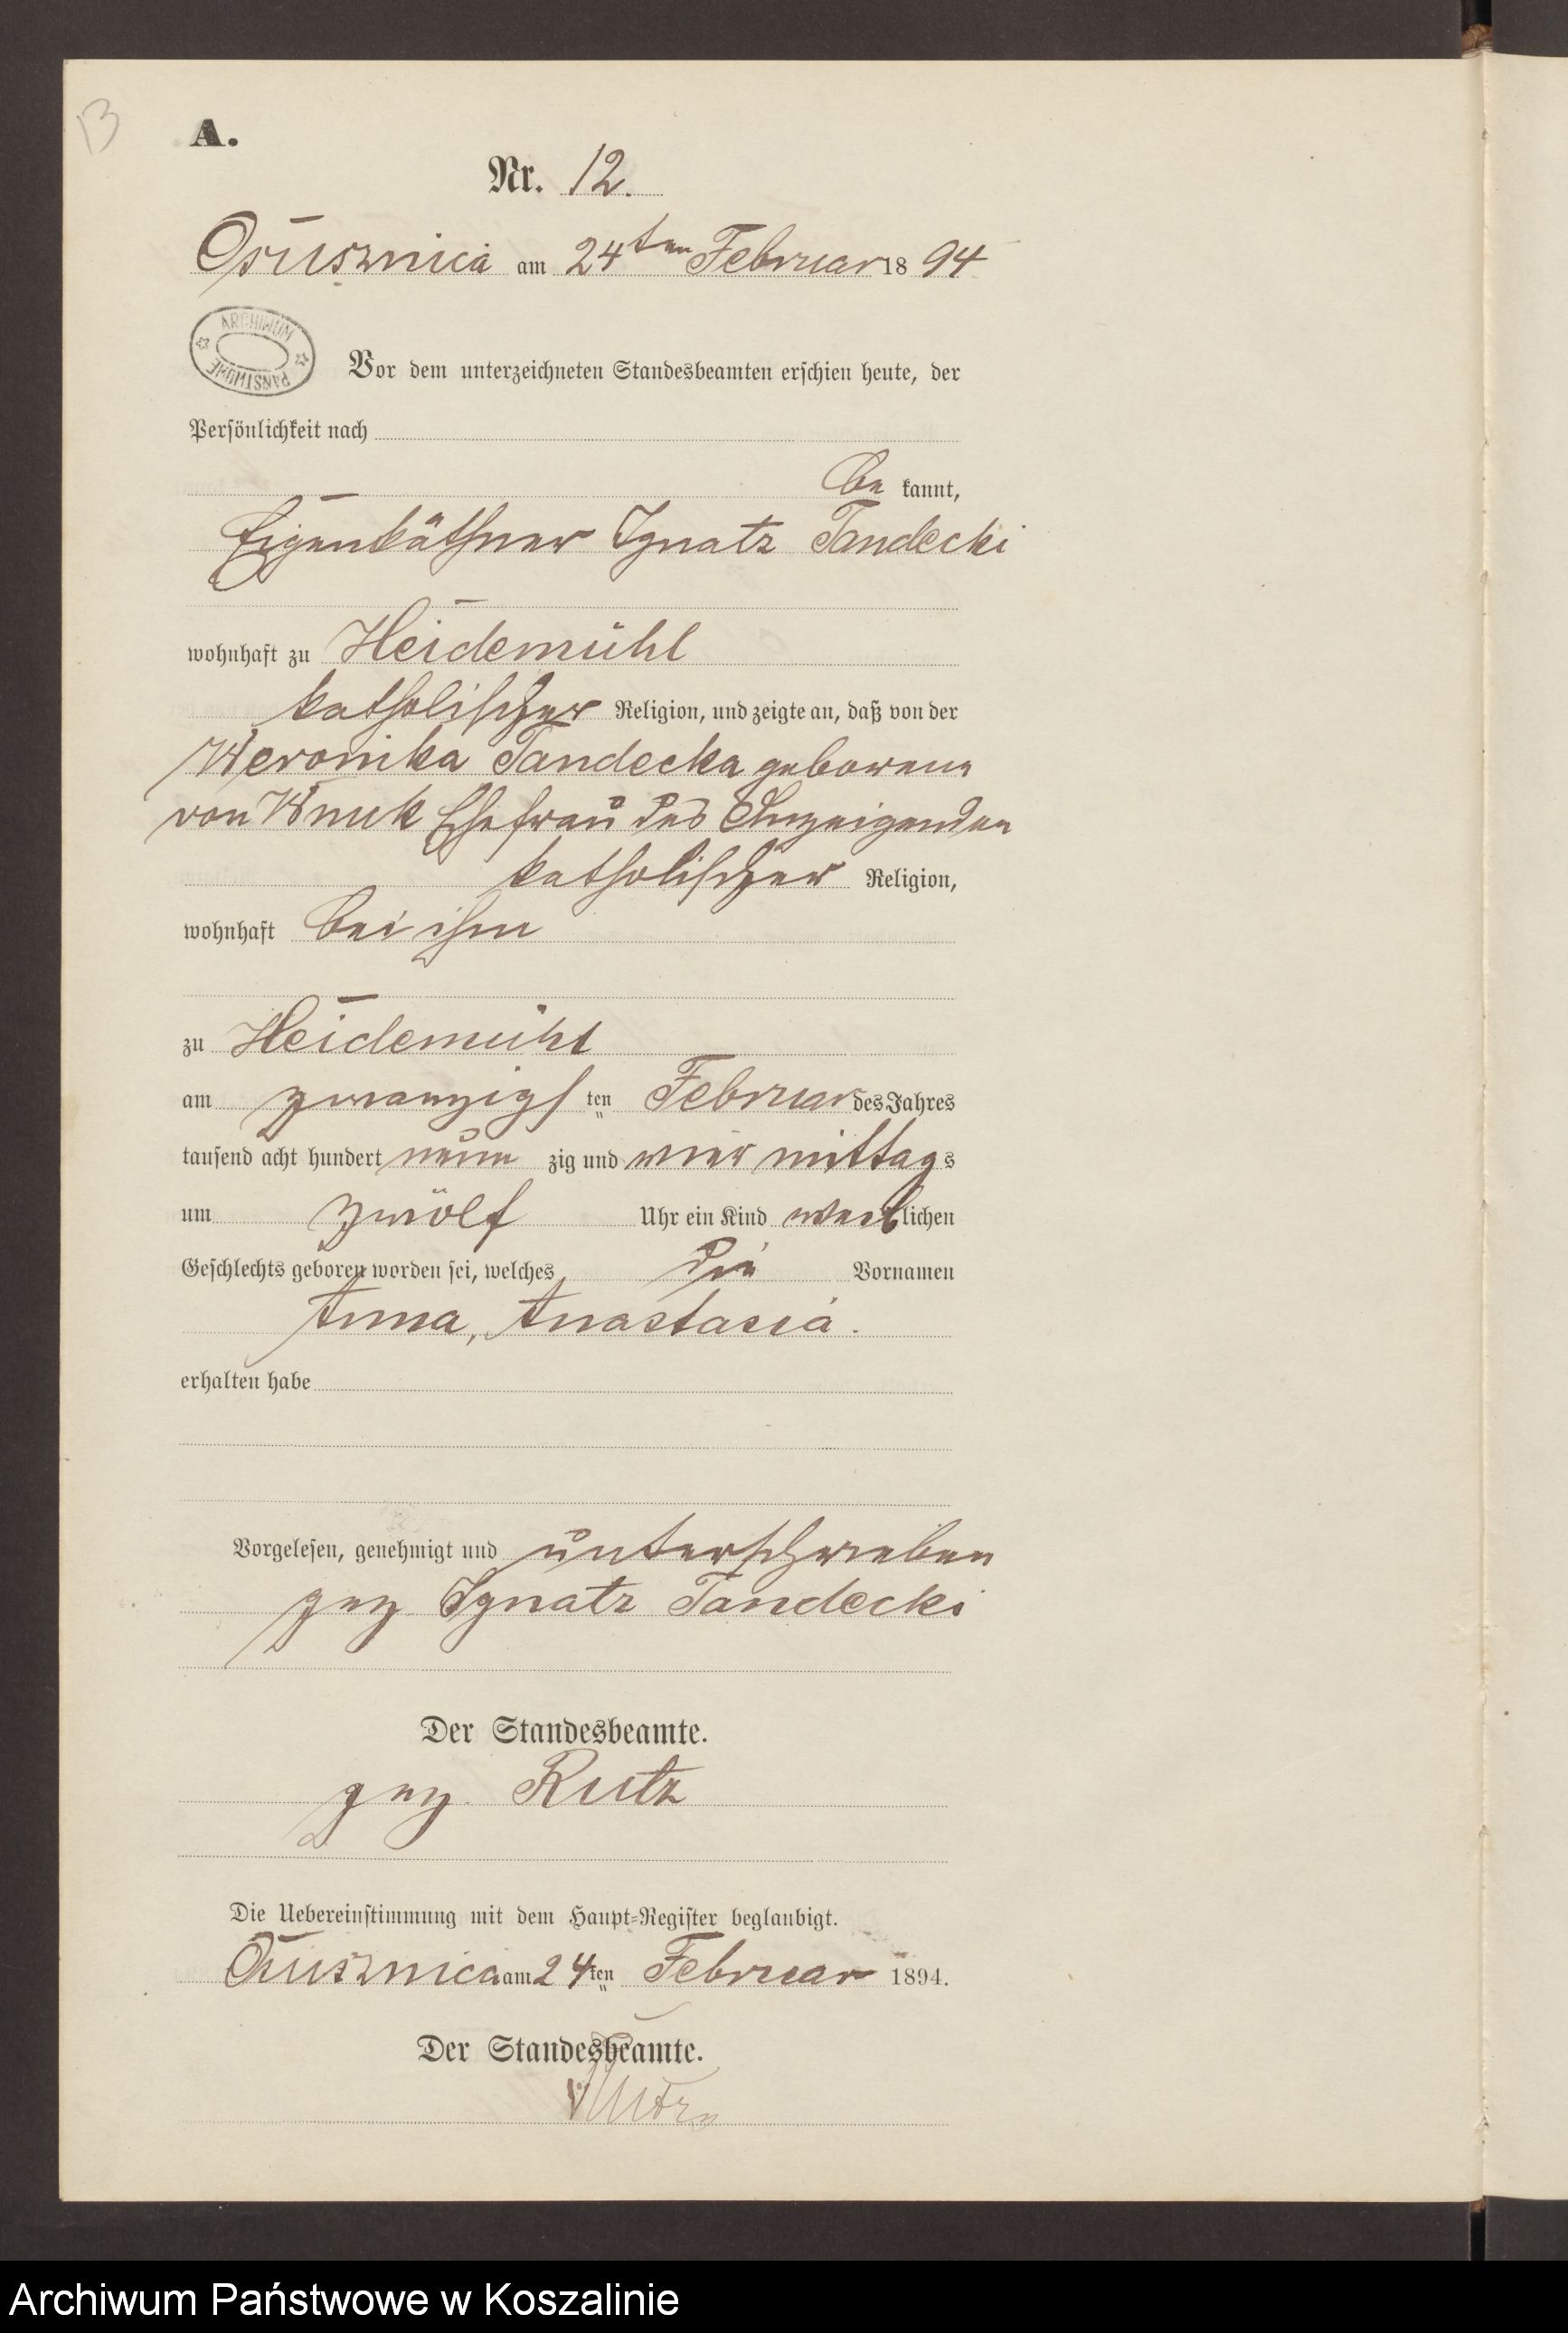 13
A.
Nr. 12.
Osusznica am 24ten Februar 18 94
ARCHIWUM PAŃSTWOWE
Vor dem unterzeichneten Standesbeamten erschien heute, der
Persönlichkeit nach
be kannt,
Eigenkäthner Ignatz Tandecki
wohnhaft zu Heidemühl
katholischer Religion, und zeigte an, daß von der
Weronika Tandecka geborene
von Wnuk Ehefrau des Anzeigenden
katholischer Religion,
wohnhaft bei ihm
zu Heidemühl
am zwanzigs ten Februar des Jahres
tausend acht hundert neun zig und vier mittags
um zwölf Uhr ein Kind weiblichen
Geschlechts geboren worden sei, welches die Vornamen
Anna, Anastasia.
erhalten habe
Vorgelesen, genehmigt und unterschrieben
gez. Ignatz Tandecki
Der Standesbeamte.
gez. Rutz
Die Uebereinstimmung mit dem Haupt=Register beglaubigt.
Osusznica am 24ten Februar 1894.
Der Standesbeamte.
Archiwum Państwowe w Koszalinie